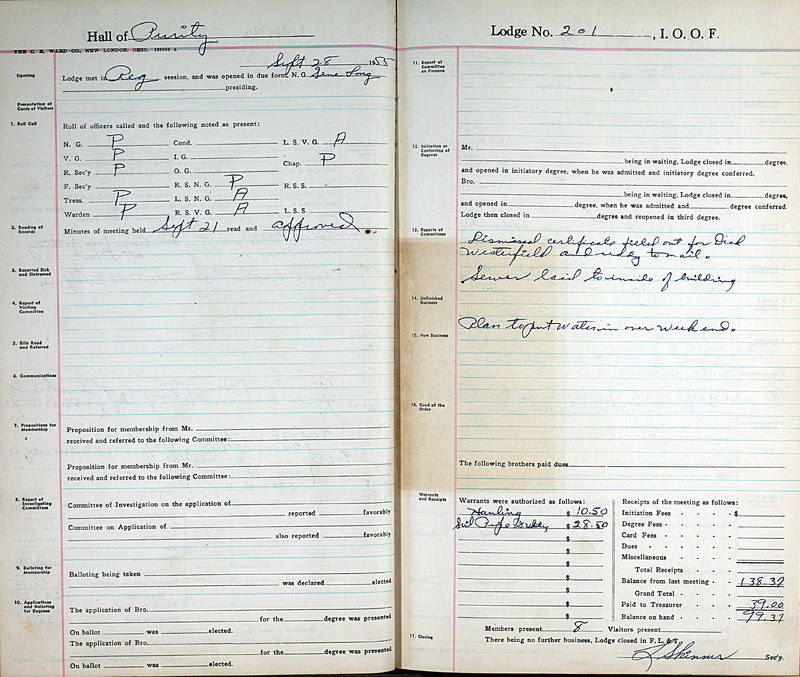 Hall of Purity
THE C. E. WARD CO., NEW LONDON, OHIO.
Sept 28 1955
Opening
Lodge met in Reg session, and was opened in due form, N. G. Gene Long
presiding.
Presentation of Cards of Visitors
1. Roll Call
Roll of officers called and the following noted as present:
N. G. P Cond. L. S. V. G. A
V. G. P I. G. Chap. P
R. Sec'y P O. G.
F. Sec'y R. S. N. G. P R. S. S.
Treas. P L. S. N. G. A
Warden P R. S. V. G. A L. S. S.
2. Reading of Records
Minutes of meeting held Sept 21 read and approved
3. Reported Sick and Distressed
4. Report of Visiting Committee
5. Bills Read and Referred
6. Communications
7. Propositions for Membership
Proposition for membership from Mr.
received and referred to the following Committee:
Proposition for membership from Mr.
received and referred to the following Committee:
8. Report of Investigating Committees
Committee of Investigation on the application of
reported favorably
Committee on Application of
also reported favorably
9. Balloting for Membership
Balloting being taken
was declared elected
10. Applications and Balloting for Degrees
The application of Bro.
for the degree was presented
On ballot was elected.
The application of Bro.
for the degree was presented
On ballot was elected.
Lodge No. 201, I. O. O. F.
11. Report of Committee on Finance
12. Initiation or Conferring of Degrees
Mr.
being in waiting, Lodge closed in degree,
and opened in initiatory degree, when he was admitted and initiatory degree conferred.
Bro.
being in waiting, Lodge closed in degree,
and opened in degree, when he was admitted and degree conferred.
Lodge then closed in degree and reopened in third degree.
13. Reports of Committees
Dismissal certificate filled out for Dick
Westerfield and ready to mail.
Sewer laid to inside of building
14. Unfinished Business
Plan to put water in over week end.
15. New Business
16. Good of the Order
The following brothers paid dues
Warrants and Receipts
Warrants were authorized as follows:
Hauling $ 10.50
$ 28.50
$
$
$
$
$
$
$
Receipts of the meeting as follows:
Initiation Fees - - - - $
Degree Fees - - - -
Card Fees - - - -
Dues - - - - -
Miscellaneous - - - -
Total Receipts - -
Balance from last meeting - - 138.37
Grand Total - - -
Paid to Treasurer - - 39.00
Balance on hand - - - 99.37
Members present 8 Visitors present
17. Closing
There being no further business, Lodge closed in F. L. & T.
L Skinner Sec'y.